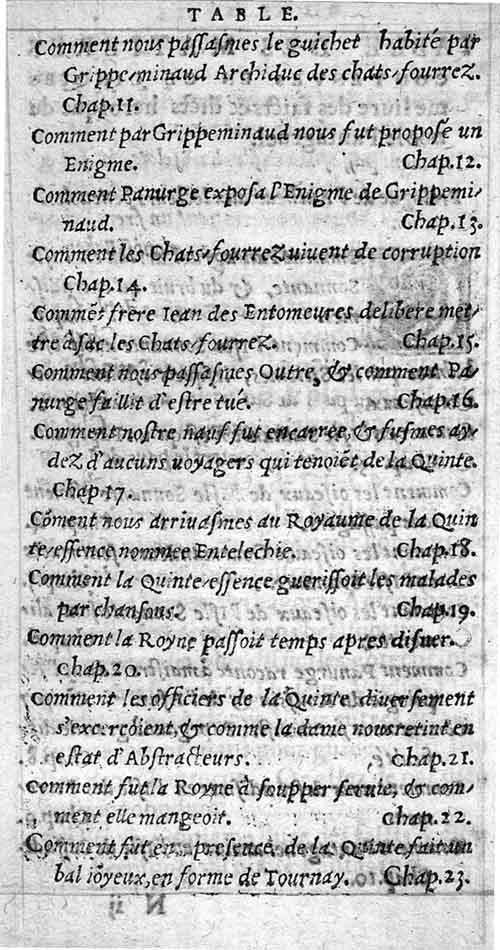 TABLE.
Comment nous paſſaſmes le guichet habité par
Grippe-minaud Archiduc des chats-fourrez.
Chap.11.
Comment par Grippeminaud nous fut propoſé un
Enigme. Chap.12.
Comment Panurge expoſa l'Enigme de Grippemi-
naud. Chap.13.
Comment les Chats-fourrez uiuent de corruption
Chap.14.
Commēt frere Iean des Entomeures delibere met-
tre à ſac les Chats-fourrez. Chap.15.
Comment nous paſſaſmes Outre, & comment Pa-
nurge faillit d'eſtre tué. Chap.16.
Comment noſtre nauf fut encarrée, & fuſmes ay-
dez d'aucuns uoyagers qui tenoiēt de la Quinte.
Chap.17.
Cōment nous arriuaſmes au Royaume de la Quin
te-eſſence nommee Entelechie. Chap.18.
Comment la Quinte-eſſence gueriſſoit les malades
par chanſons. Chap.19.
Comment la Royne paſſoit temps apres diſner.
Chap.20.
Comment les officiers de la Quinte diuerſement
s'excerçoient, & comme la dame nous retint en
eſtat d'Abſtracteurs. Chap.21.
Comment fut la Royne à ſoupper ſeruie, & com-
ment elle mangeoit. Chap.22.
Comment fut en preſence de la Quinte fait un
bal ioyeux, en forme de Tournay. Chap.23.
N ij